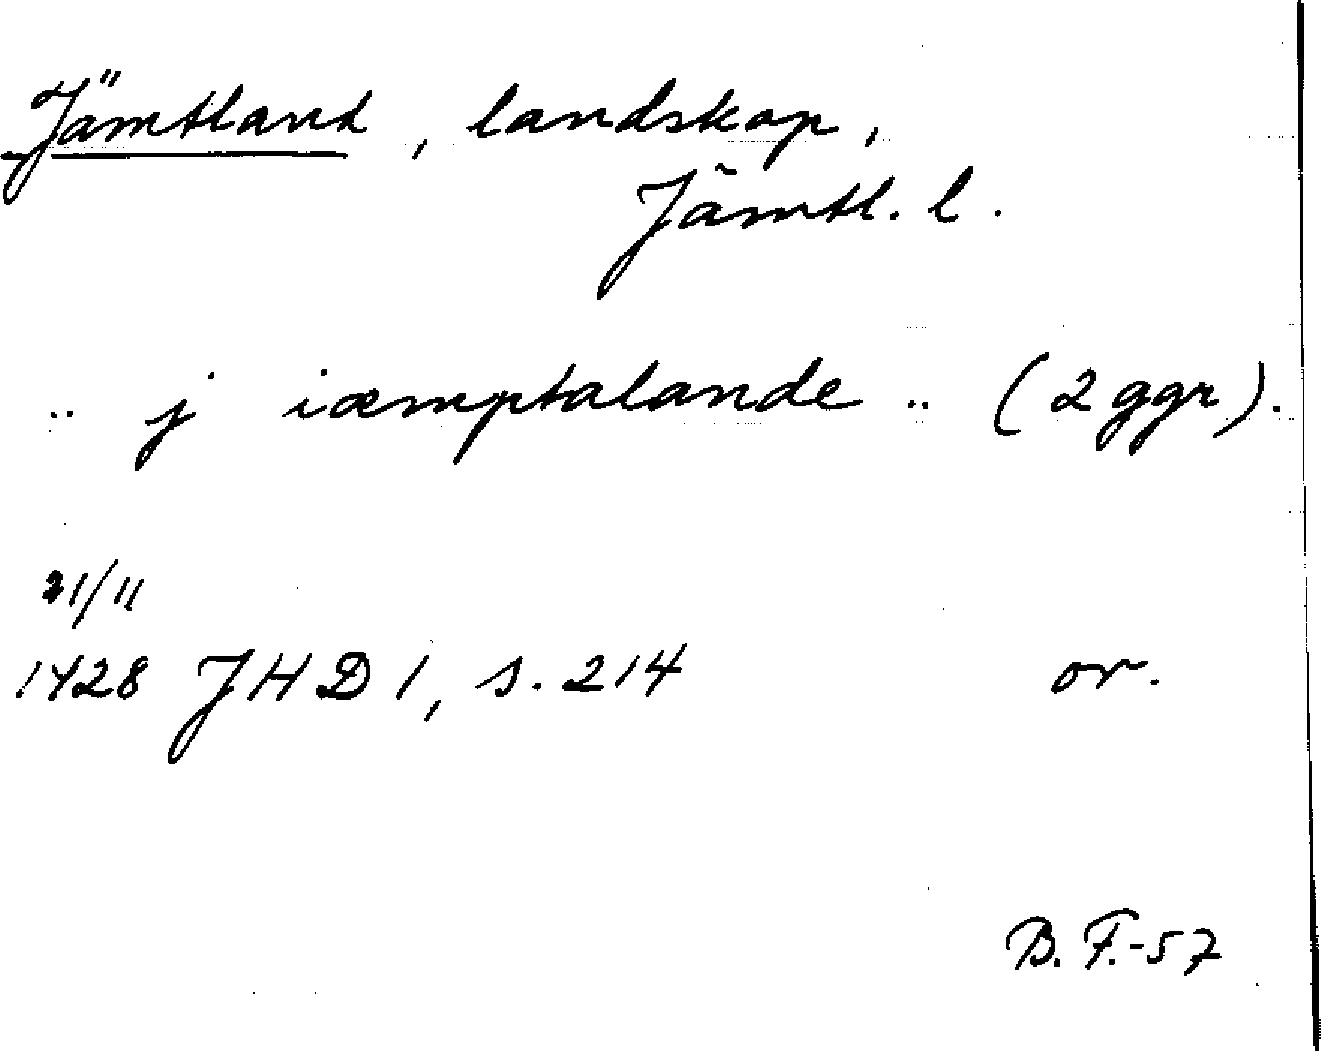 Jämtland, landskap,
Jämtl. l.
.. j iæmptalande .. (2 ggr).
21/11
1428 JHD 1, s. 214 or.
B. F.-57